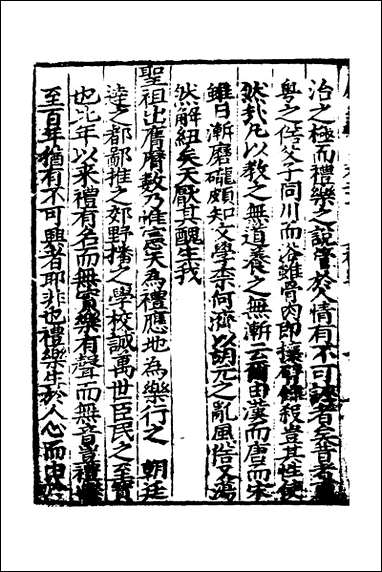 治之極而禮樂之說管於人情有不可誣者矣昔者
粤之俗父子同川而浴雖骨肉即攘臂錐殺豈其性使
然哉凡以教之無道養之無漸云爾由漢而唐而宋
雖日漸磨礲頗知文學柰何濟以胡元之亂風俗又蕩
然解紐矣天厭其醜生我
聖祖出膺曆數乃惟憲天為禮應地為樂行之 朝廷
達之都鄙推之郊野播之學校誠萬世臣民之至寶
也比年以来禮有名而無實樂有聲而無音豈禮樂
至百年猶有不可興者耶非也禮樂生於人心而由